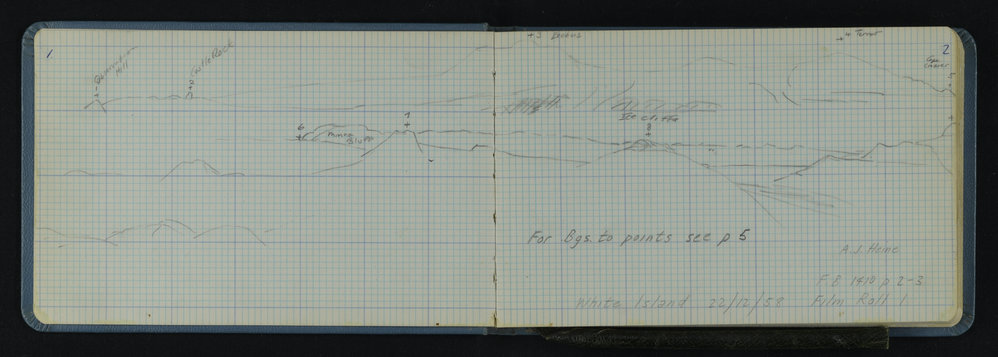 1
1 Observation Hill
2 Castle Rock
+3 Erebus
+4 Terror
2
Cape Crozier
5
6
Minna Bluff
7
Ice cliffs
8
For Bgs. to points see p 5
A.J. Heine
F B 1410 p 2-3
White Island 22/12/58 Film Roll 1